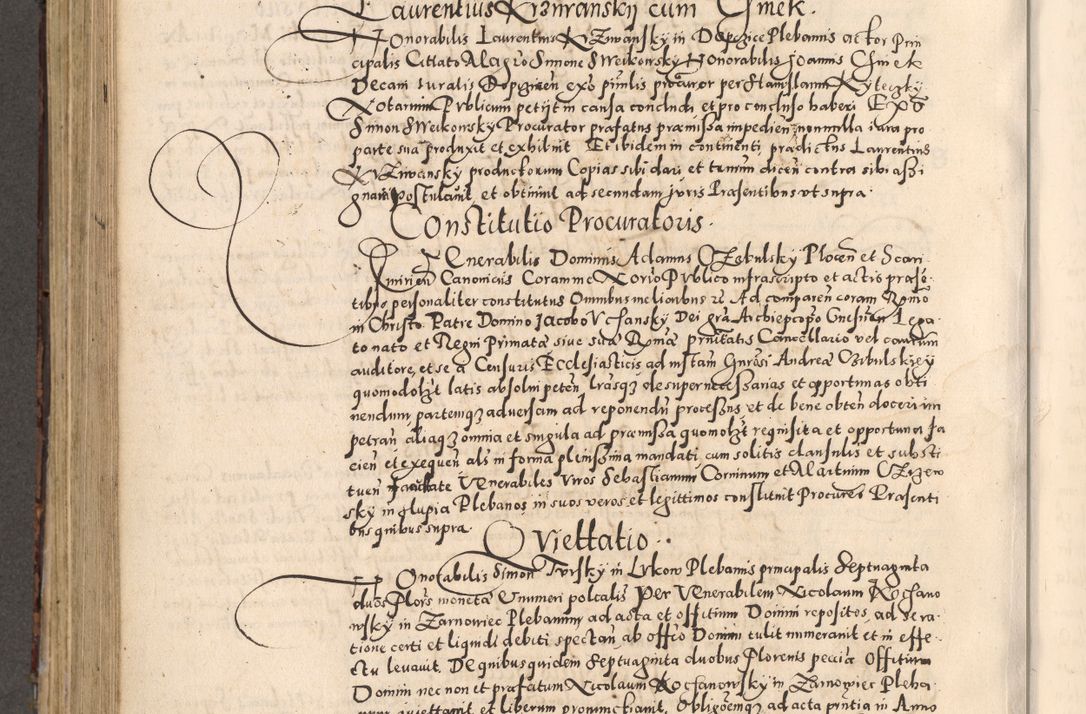 Laurentius Krzivansky cum Chmek.
Honorabilis Laurentius Krziwansky in Dopczice Plebanus actor Prin
cipalis Citato Magro Simone Sweikowsky Honorabilis Joannis Chmek
Decani ruralis principalis procuror per Stanislaum
Notarium Publicum petiit in causa concludi et pro concluso haberi Ex
Simon Sweikonsky Procurator prafatus praemissa impedien nonnulla iura pro
parte sua produxit et exhibuit Et ibidem in continenti praedictus Laurentius
Krziwansky productorum Copias sibi dari et termin dicen contra sibi assi
gnari postulauit et obtinuit ad secundam juris Prasentibus vt supra.
Constitutio Procuratoris.
Venerabilis Dominus Adamus Czebulsky Plocen et Scar
mirien Canonicus Coram me Norio Publico infrascripto et actis prase
tibus personaliter constitutus Omnibus melioribus rc Ad comparen coram Rmo
in Christo Patre Domino Jacobo Vchansky Dei gra Archiepcopo Gnesnen Lega
to nato et Regni Primata siue sua Rma prnitatis Cancellario vel causarum
auditore, et se a Censuris Ecclesiasticis ad instam Gnrosi Andrea Czibulskiey
quomodolzt latis absolui peten, lrasqz desuper necessarias et opportunas obti
nendum partemqz adversam ad reponendu processus et de bene obten doceri im
petran aliaqz omnia et singula ad praemissa quomolzt requisita et opportuna fa
cien et exequen als in forma plenissima mandati cum solitis clausulis et substi
tuen facultate Venerabiles Viros Sebastianum Corninum et Martinum Czizew
sky in Plebanos in suos veros et legittimos constituit Procures Prasenti
bus quibus supra.
Quiettatio.
Honorabilis Simon Tursky in Lukow Plebanus principalis Septuaginta
duos Flors moneta numeri polcalis Per Venerabilem Nicolaum Kochano
wsky in Zarnowiec Plebanum ad acta et offitium Domini repositos, ad
tione certi et liquidi debiti spectan ab offio Domini tulit numerauit et in effe
ctu leuauit. De quibusquidem Septuaginta duobus Florenis peccia Offitium
Domini nec non et prafatum Nicolaum Kochanowsky in Zarnowiec Pleba
num quiettauit et liberum pronunctiauit. Obligoemqz ad acta prntia in Anno